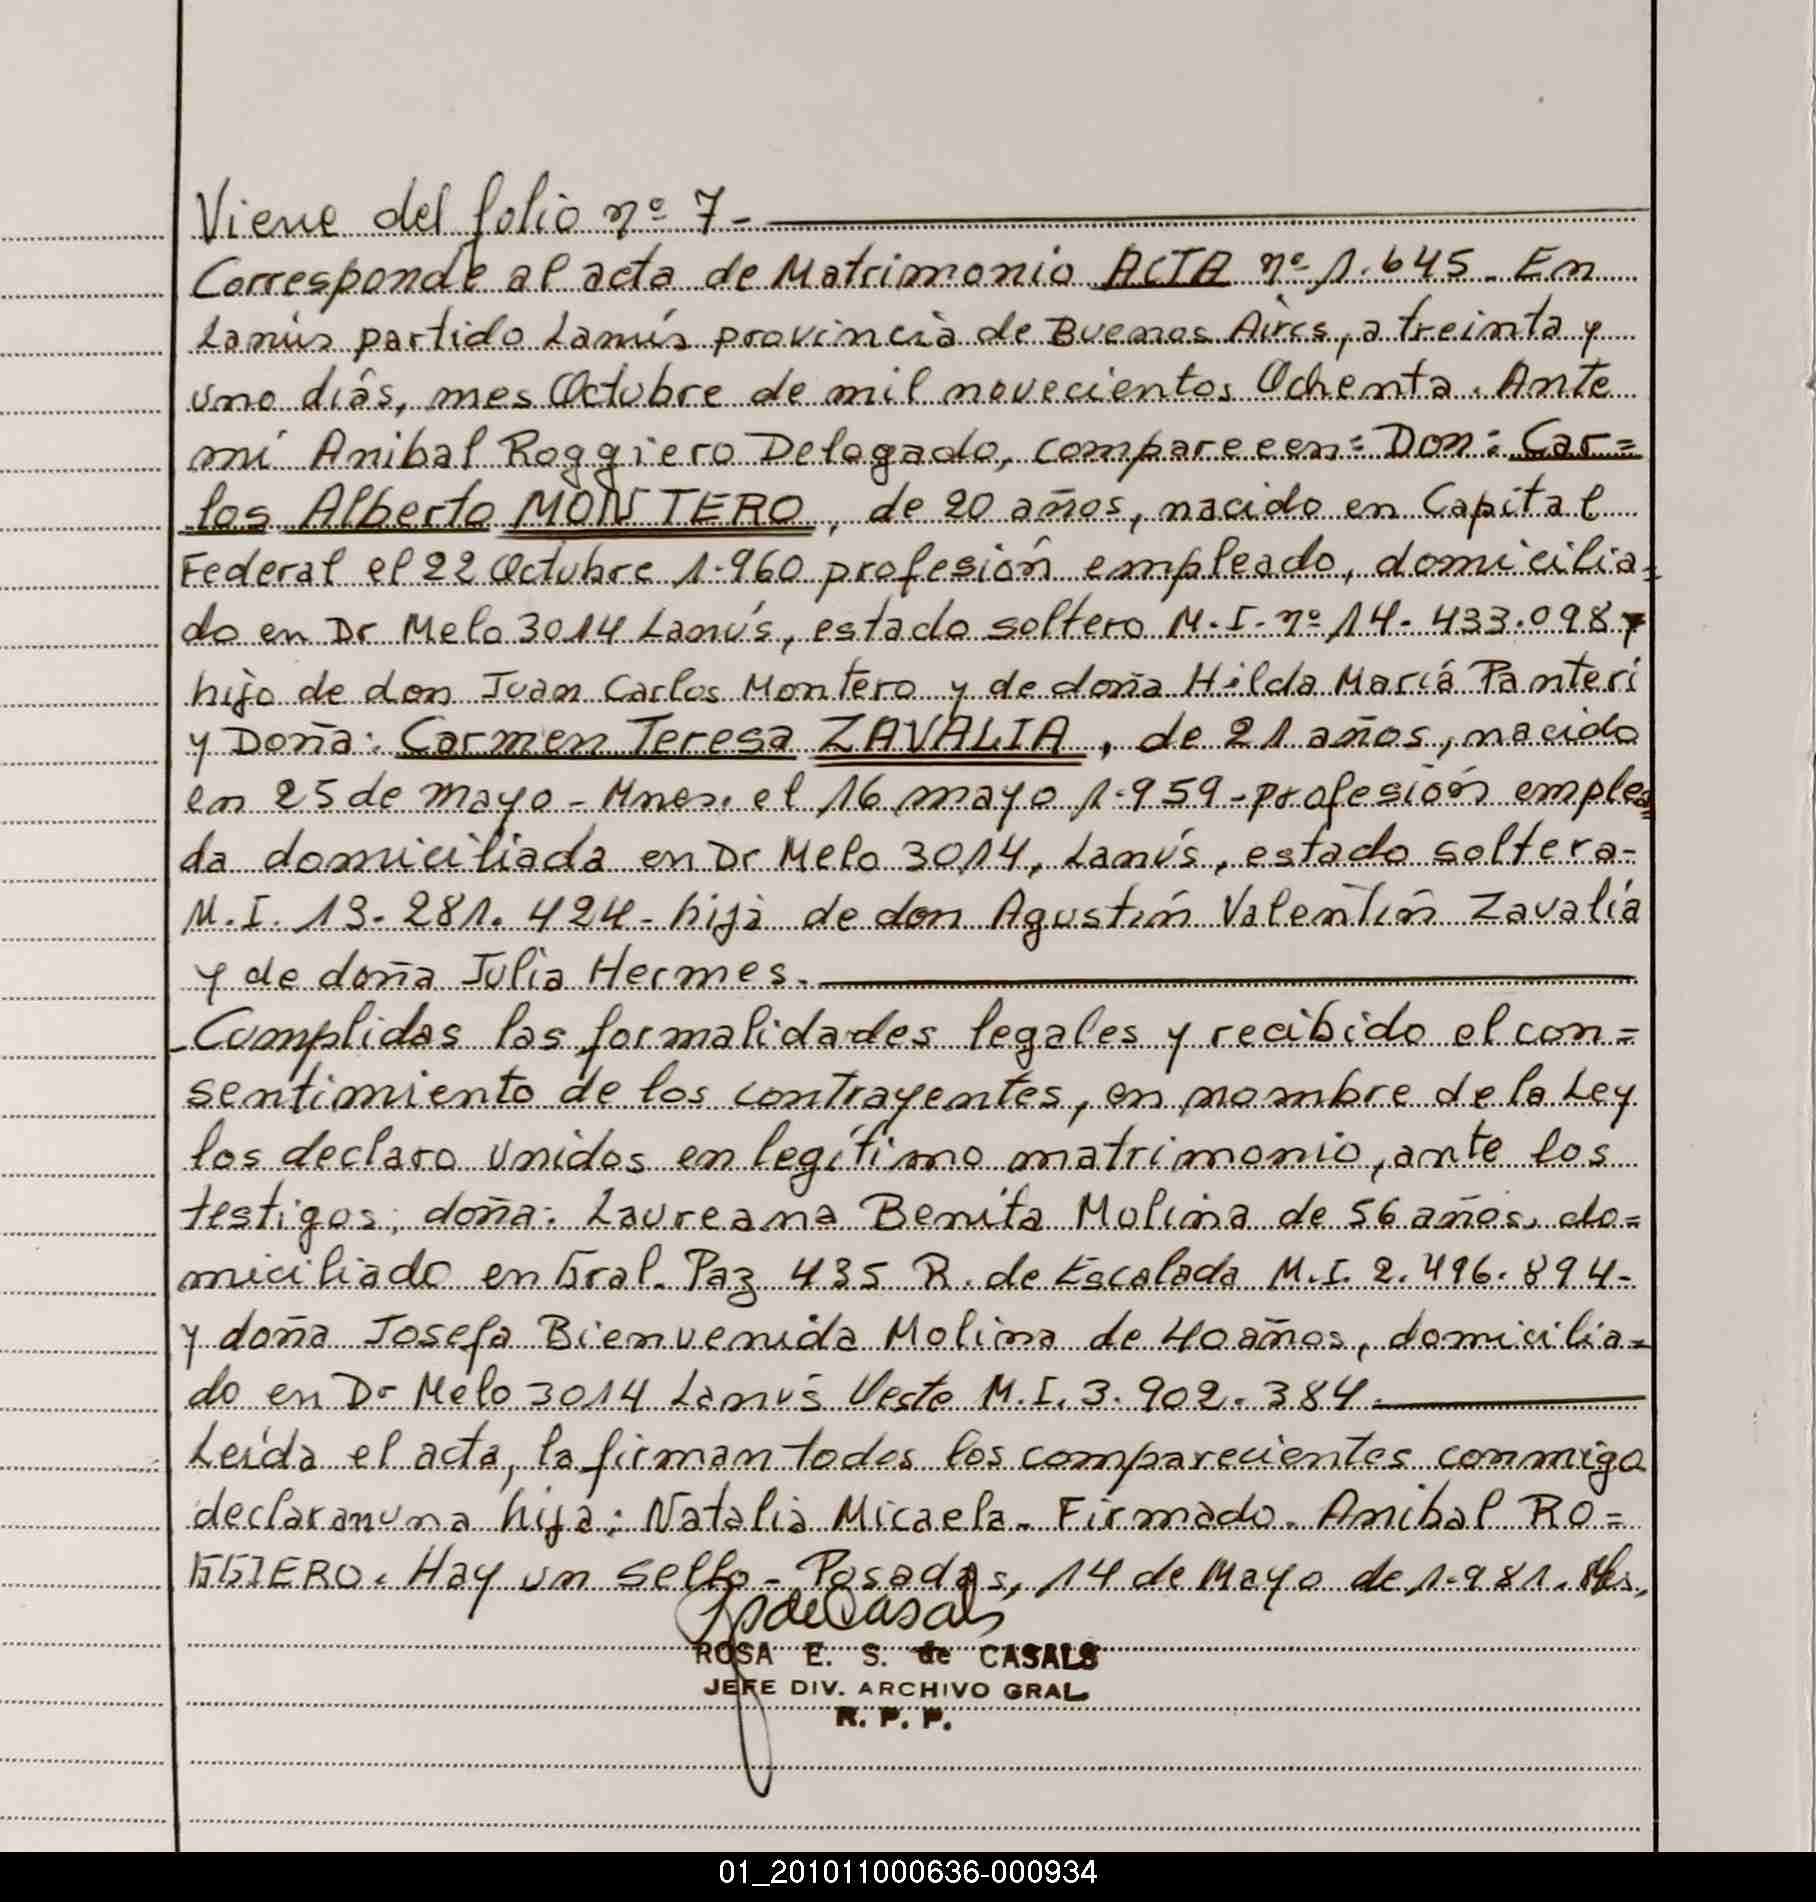 Viene del folio nº 7-
Corresponde al acta de Matrimonio ACTA nº 1.645. En
Lanús partido Lanús provincia de Buenos Aires, a treinta y
uno diás, mes Octubre de mil novecientos Ochenta. Ante
mí Anibal Roggiero Delogado, compareeen: Don: Car=
los Alberto MONTERO, de 20 años, nacido en Capital
Federal el 22 Octubre 1.960 profesión empleado, domicilia=
do en Dr Melo 3014 Lanús, estado soltero M.I. nº 14.433.098,
hijo de don Juan Carlos Montero y de doña Hilda Mariá Panteri
y Doña: Carmen Teresa ZAVALIA, de 21 años, nacido
en 25 de mayo - Mnes. el 16 mayo 1.959 - profesión emplea
da domiciliada en Dr Melo 3014, Lanús, estado soltera-
M.I. 13.281.424 - hija de don Agustín Valentín Zavalía
y de doña Julia Hermes.
-Cumplidas las formalidades legales y recibido el con=
sentimiento de los contrayentes, en nombre de la Ley
los declaro unidos en legítimo matrimonio, ante los
testigos, doña: Laureana Benita Molina de 56 años, do=
miciliado en Gral. Paz 435 R. de Escalada M.I. 2.496.894-
y doña Josefa Bienvenida Molina de 40 años, domicilia=
do en Dr Melo 3014 Lanús Oeste M.I. 3.902.384.
Leída el acta, la firman todos los comparecientes conmigo
declaran una hija: Natalia Micaela. Firmado. Anibal RO=
GGIERO. Hay un sello - Posadas, 14 de Mayo de 1.981.
de Casals
ROSA E. S. de CASALS
JEFE DIV. ARCHIVO GRAL.
R. P. P.
01_201011000636-000934